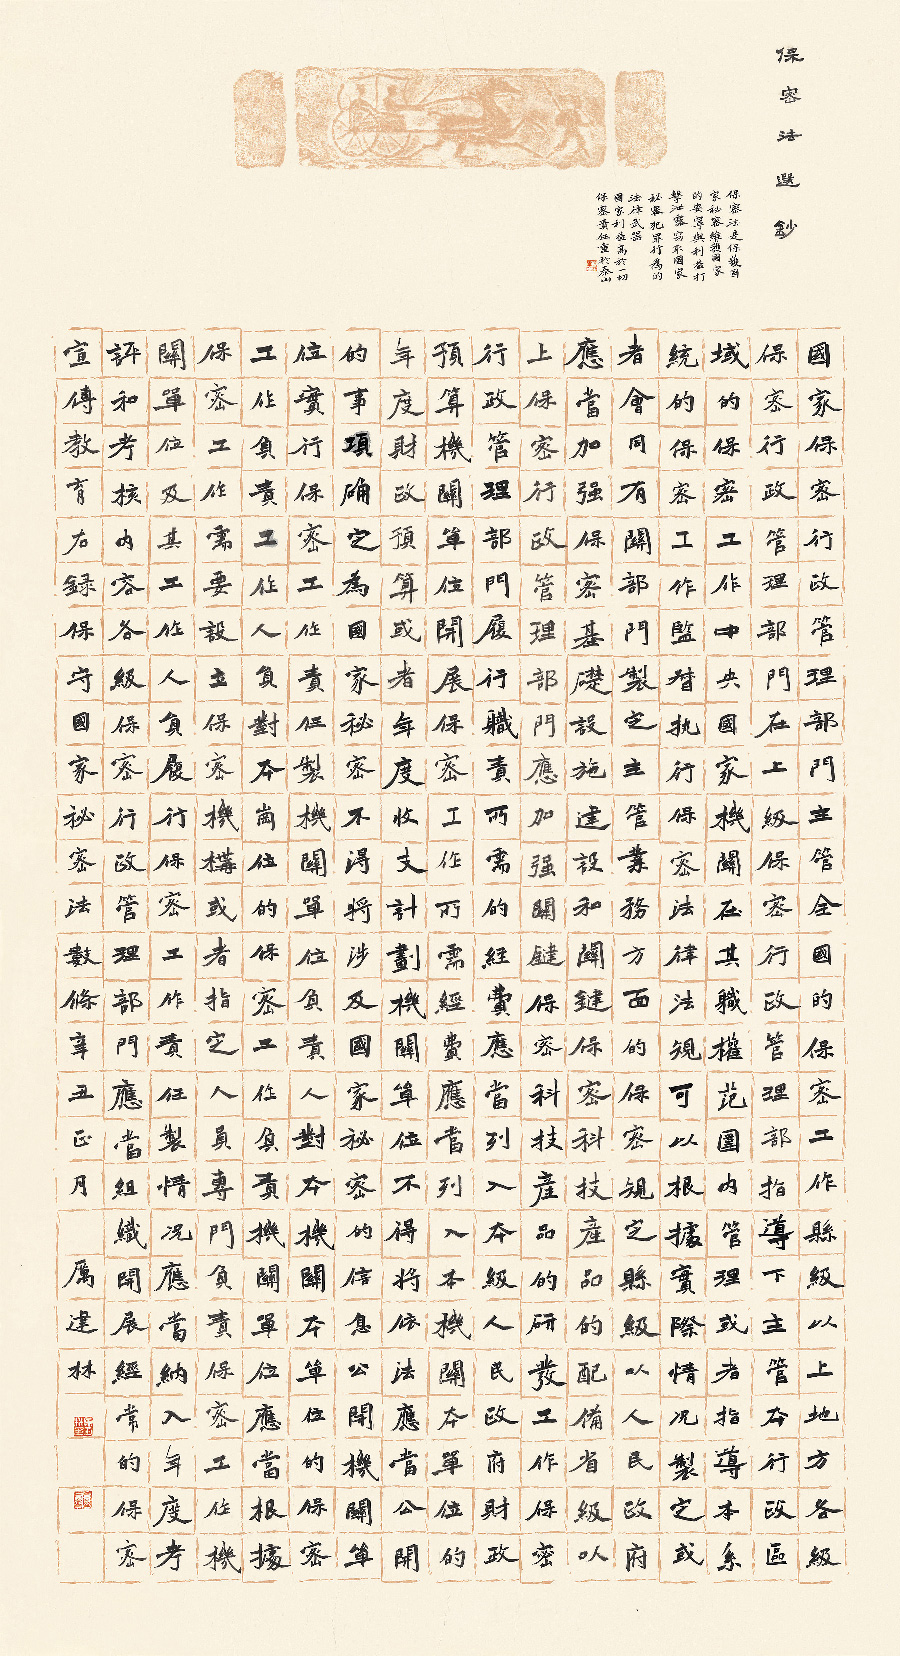 保密法選鈔
保密法是保護國
家秘密維護國家
的安寧與利益打
擊泄露竊取國家
秘密犯罪行為的
法律武器
國家利益高於一切
保密責任重於泰山
國家保密行政管理部門主管全國的保密工作縣級以上地方各級
保密行政管理部門在上級保密行政管理部指導下主管本行政區
域的保密工作中央國家機關在其職權范圍内管理或者指導本系
統的保密工作監督执行保密法律法規可以根據實際情况製定或
者會同有關部門製定主管業務方面的保密規定縣級以人民政府
應當加强保密基礎設施建設和關鍵保密科技産品的配備省級以
上保密行政管理部門應加强關鍵保密科技産品的研發工作保密
行政管理部門履行職責所需的經費應當列入本級人民政府財政
預算機關單位開展保密工作所需經費應當列入本機關本單位的
年度財政預算或者年度收支計劃機關單位不得將依法應當公開
的事項确定為國家秘密不得將涉及國家秘密的信息公開機關單
位實行保密工作責任製機關單位負責人對本機關本單位的保密
工作負責工作人負對本崗位的保密工作負責機關單位應當根據
保密工作需要設立保密機構或者指定人員專門負責保密工作機
關單位及其工作人負履行保密工作責任製情况應當納入年度考
評和考核内容各級保密行政管理部門應當組織開展經常的保密
宣傳教育右録保守國家秘密法數條辛丑正月 厲建林